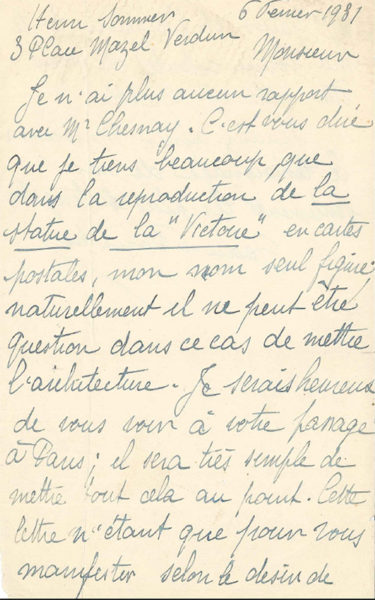 Henri Sommier 6 Février 1931
3 Place Mazel Verdun
Monsieur
Je n'ai plus aucun rapport
avec Mr Chesnay. C'est vous dire
que je tiens beaucoup que
dans la reproduction de la
statue de la "Victoire" en cartes
postales, mon nom seul figure
naturellement il ne peut être
question dans ce cas de mettre
l'architecture. Je serais heureux
de vous voir à votre passage
à Paris; il sera très simple de
mettre tout cela au point. Cette
lettre n'étant que pour vous
manifester selon le désir de